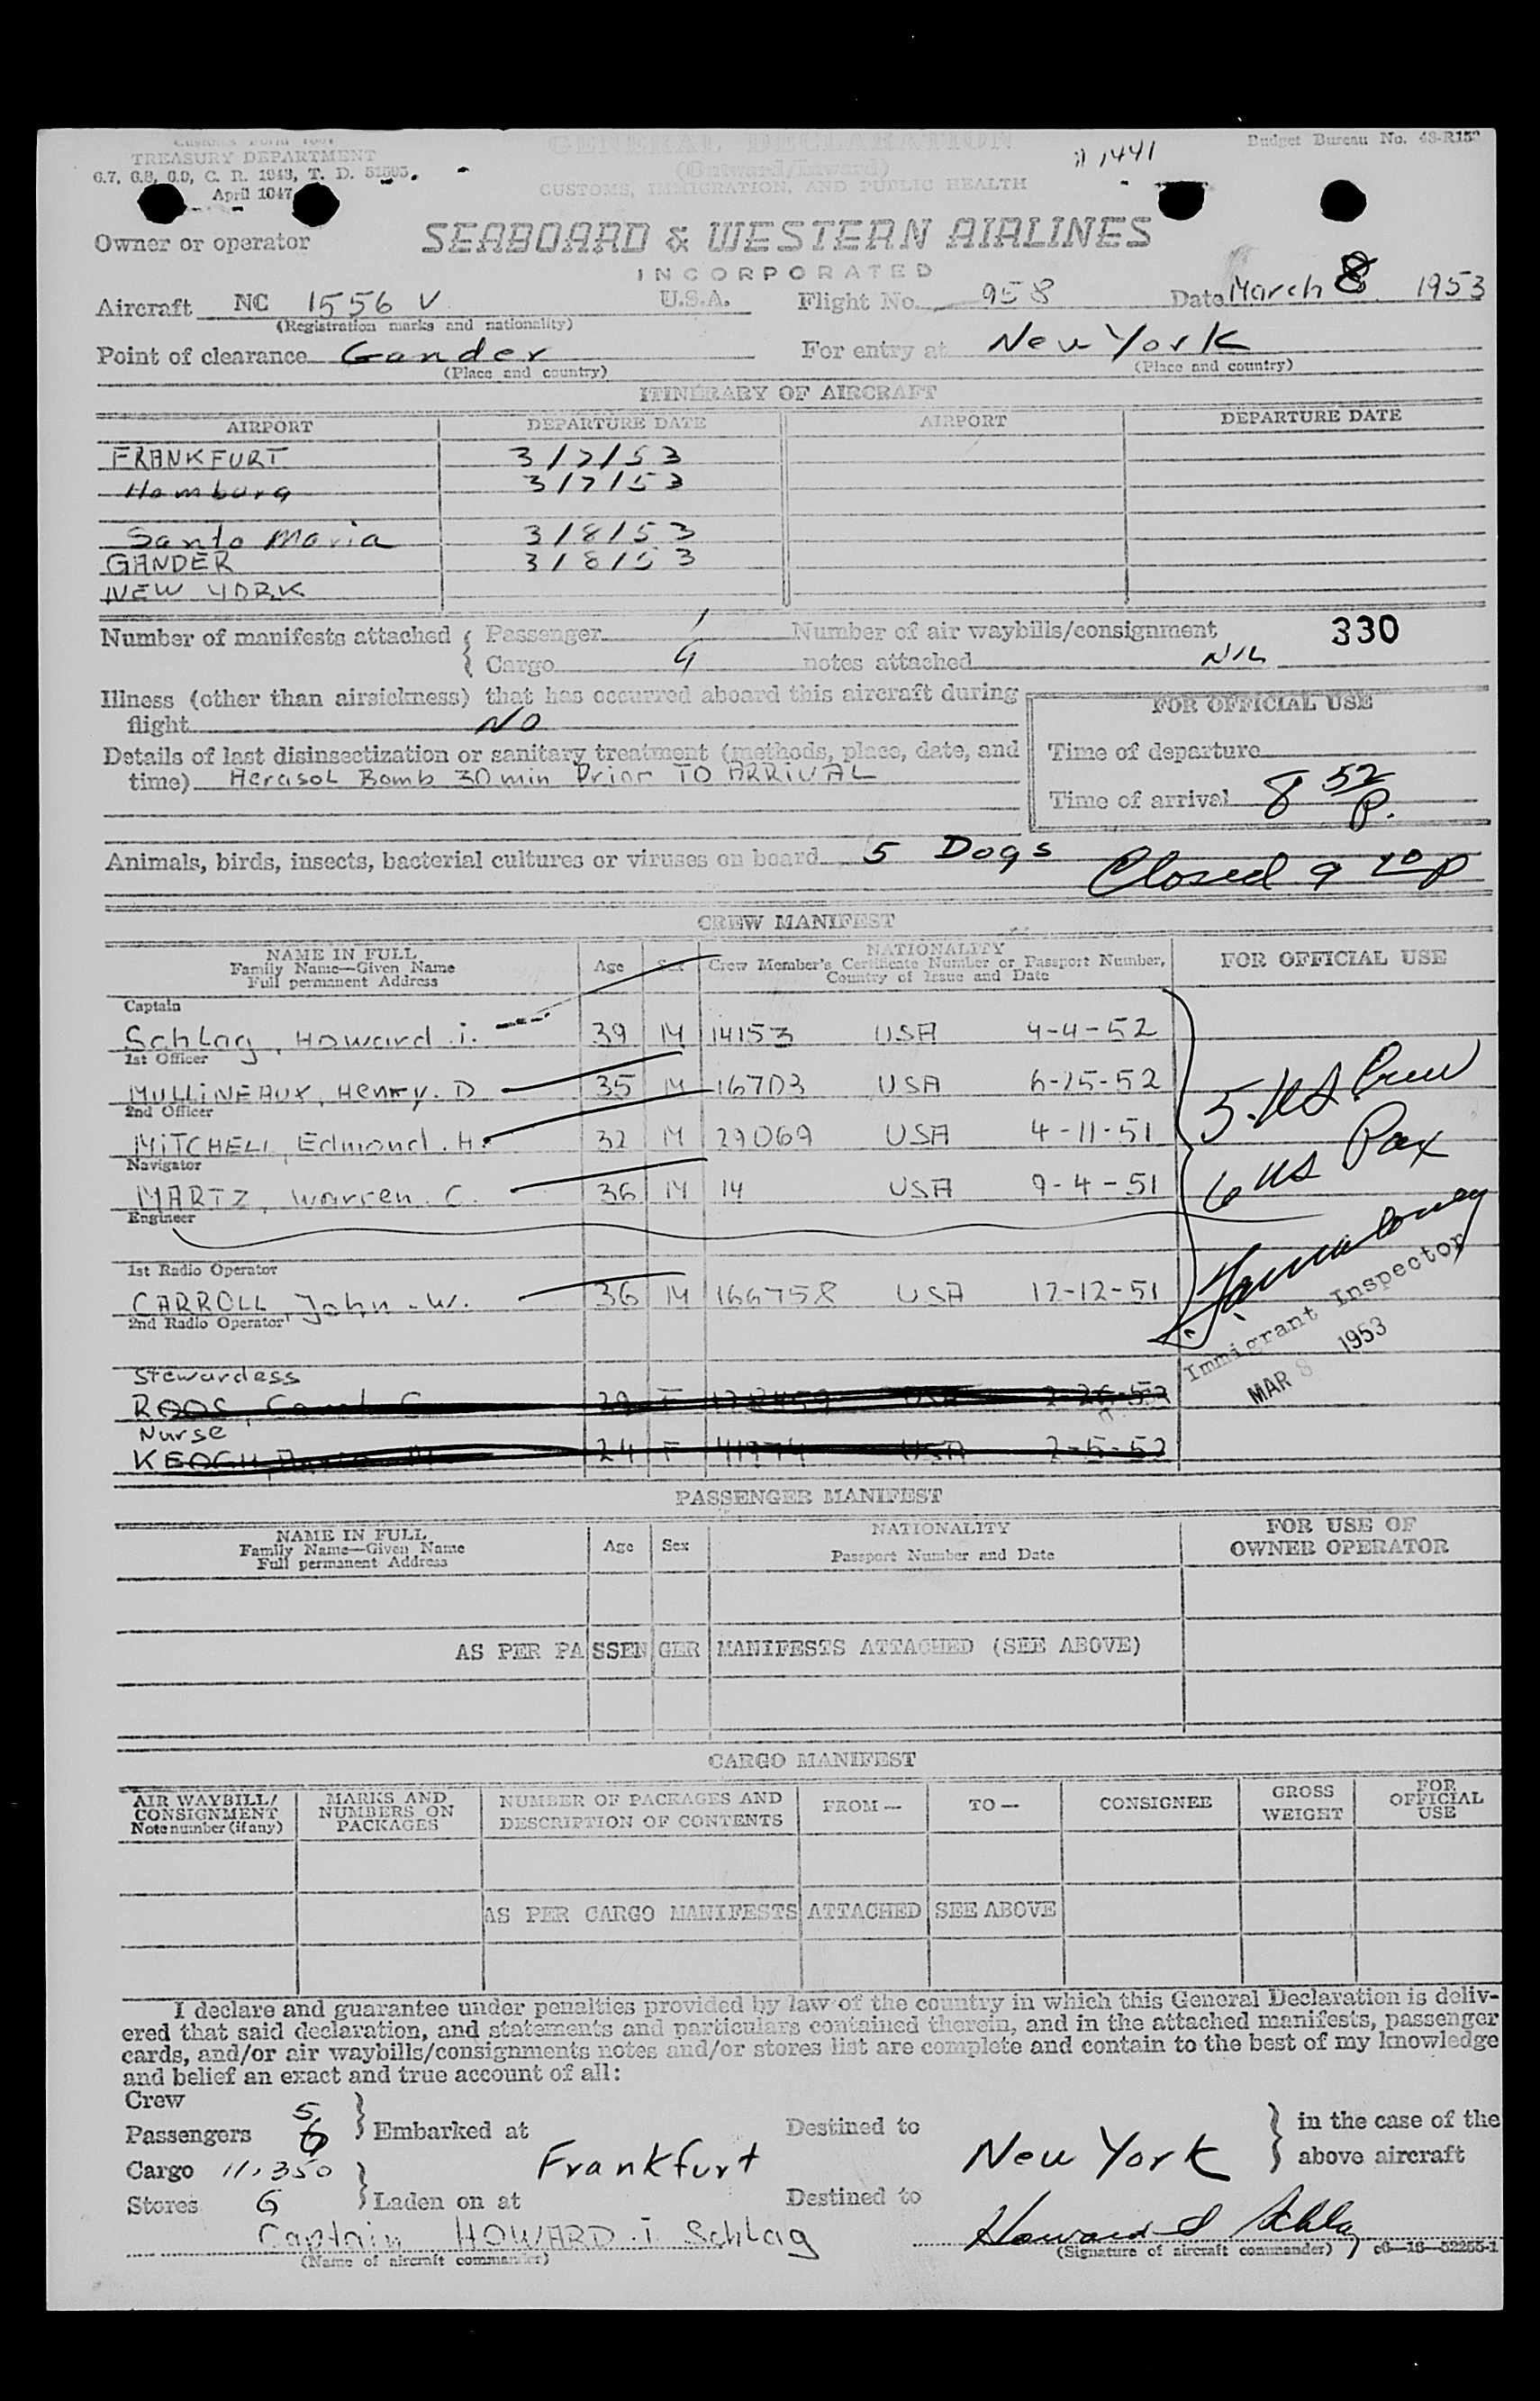 TREASURY DEPARTMENT
GENERAL DECLARATION
(Outward/Inward)
CUSTOMS, IMMIGRATION, AND PUBLIC HEALTH
1441
Budget Bureau No.
6.7, 6.8, 6.9, C. R. 1943, T. D.
April 1947
Owner or operator
SEABOARD & WESTERN AIRLINES
INCORPORATED
Aircraft NC 1556 V U.S.A. Flight No. 958 Date March 8 1953
(Registration marks and nationality)
Point of clearance Gander For entry at New York
(Place and country) (Place and country)
ITINERARY OF AIRCRAFT
AIRPORT DEPARTURE DATE AIRPORT DEPARTURE DATE
FRANKFURT 3/7/53
Hamburg 3/7/53
Santa Maria 3/8/53
GANDER 3/8/53
NEW YORK
Number of manifests attached { Passenger 1 Number of air waybills/consignment 330
Cargo 4 notes attached NIL
Illness (other than airsickness) that has occurred aboard this aircraft during
flight NO
FOR OFFICIAL USE
Details of last disinsectization or sanitary treatment (methods, place, date, and
time) Aerasol Bomb 30 min Prior TO ARRIVAL
Time of departure
Time of arrival 8 52 P.
Animals, birds, insects, bacterial cultures or viruses on board 5 Dogs
Closed 9 20 P
CREW MANIFEST
NAME IN FULL
Family Name—Given Name
Full permanent Address
Age Sex
NATIONALITY
Crew Member's Certificate Number or Passport Number,
Country of Issue and Date
FOR OFFICIAL USE
Captain
Schlag, Howard .I. 39 M 14153 USA 4-4-52
1st Officer
MULLINEAUX, Henry. D 35 M 16703 USA 6-25-52
2nd Officer
MITCHELL, Edmond .H. 32 M 29069 USA 4-11-51
Navigator
MARTZ, Warren. C. 36 M 14 USA 9-4-51
Engineer
1st Radio Operator
CARROLL, John .W. 36 M 166758 USA 12-12-51
2nd Radio Operator
5 US Crew
6 US Pax
Immigrant Inspector
MAR 8 1953
Stewardess
ROOS, 29 F USA
Nurse
KEOGH, 24 F USA 2-5-52
PASSENGER MANIFEST
NAME IN FULL
Family Name—Given Name
Full permanent Address
Age Sex
NATIONALITY
Passport Number and Date
FOR USE OF
OWNER OPERATOR
AS PER PASSENGER MANIFESTS ATTACHED (SEE ABOVE)
CARGO MANIFEST
AIR WAYBILL/
CONSIGNMENT
Note number (if any)
MARKS AND
NUMBERS ON
PACKAGES
NUMBER OF PACKAGES AND
DESCRIPTION OF CONTENTS
FROM—
TO—
CONSIGNEE
GROSS
WEIGHT
FOR
OFFICIAL
USE
AS PER CARGO MANIFESTS ATTACHED SEE ABOVE
I declare and guarantee under penalties provided by law of the country in which this General Declaration is deliv-
ered that said declaration, and statements and particulars contained therein, and in the attached manifests, passenger
cards, and/or air waybills/consignments notes and/or stores list are complete and contain to the best of my knowledge
and belief an exact and true account of all:
Crew 5
Passengers 6 } Embarked at Destined to } in the case of the
Frankfurt New York above aircraft
Cargo 11,350
Stores G } Laden on at Destined to
Captain HOWARD .I Schlag Howard I Schlag
(Name of aircraft commander) (Signature of aircraft commander) c6—16—52255-1